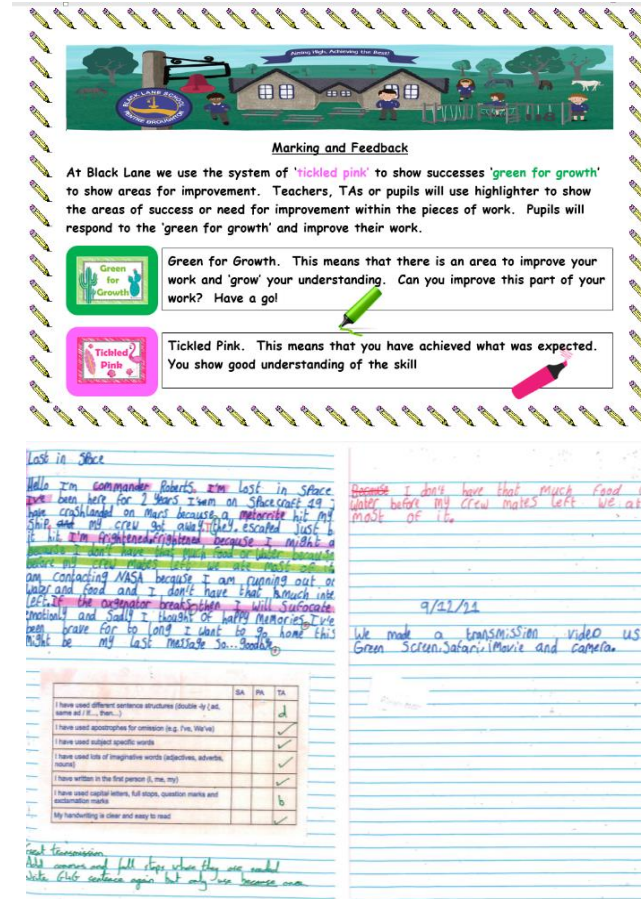 Aiming High, Achieving the Best!
BLACK LANE SCHOOL
PENTRE BROUGHTON
Marking and Feedback
At Black Lane we use the system of 'tickled pink' to show successes 'green for growth'
to show areas for improvement. Teachers, TAs or pupils will use highlighter to show
the areas of success or need for improvement within the pieces of work. Pupils will
respond to the 'green for growth' and improve their work.
Green
for
Growth
Green for Growth. This means that there is an area to improve your
work and 'grow' your understanding. Can you improve this part of your
work? Have a go!
Tickled
Pink
Tickled Pink. This means that you have achieved what was expected.
You show good understanding of the skill
Lost in Space
Hello I'm commander Roberts. I'm lost in Space
I've been here for 2 years I'm on Spacecraft 19 I
have crashlanded on Mars because a metorrite hit my
Ship, and my crew got away They escaped just b
it hit I'm frightened, frightened because I might a
because I don't have that much food or water because
before my crew mates left we ate most of it
am contacting NASA because I am running out or
water and food and I don't have that much inte
left. If the oxgenator breaks, then I will Sufocate
emotionly and Sadly I thought of happy memories. I've
been brave for to long I want to go home this
might be my last message so... goodbye
SA PA TA
I have used different sentence structures (double -ly / ad,
same ad / If..., then...) d
I have used apostrophes for omission (e.g. I've, We've)
I have used subject specific words
I have used lots of imaginative words (adjectives, adverbs,
nouns)
I have written in the first person (I, me, my)
I have used capital letters, full stops, question marks and
exclamation marks b
My handwriting is clear and easy to read
reat transmission
Add commas and full stops where they are needed
Write G4G sentence again but only use because once
Because I don't have that much food
water before my crew mates left we at
most of it.
9/12/21
We made a transmission video us
Green Screen, Safari, iMovie and camera.